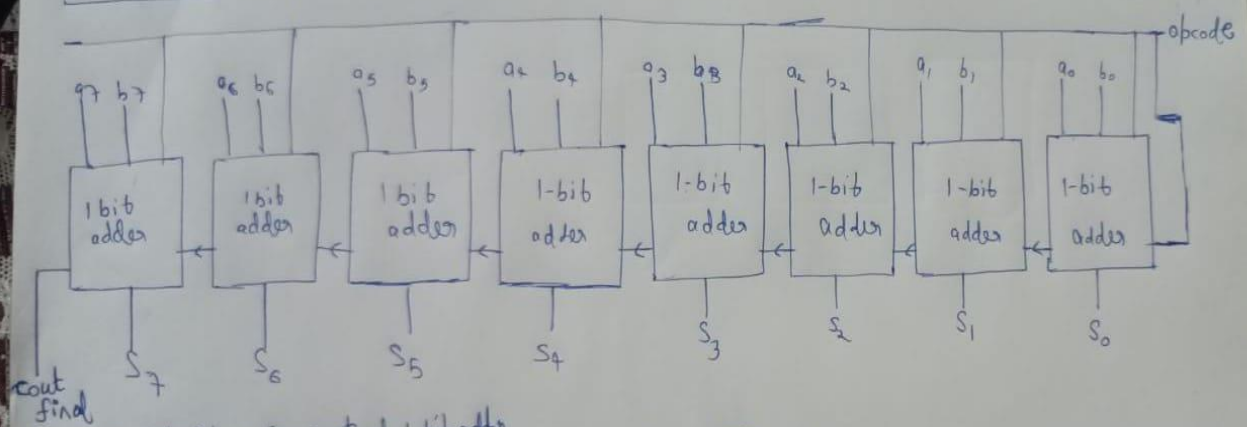 opcode
a7 b7 a6 b6 a5 b5 a4 b4 a3 b3 a2 b2 a1 b1 a0 b0
1 bit adder
1 bit adder
1 bit adder
1-bit adder
1-bit adder
1-bit adder
1-bit adder
1-bit adder
S7 S6 S5 S4 S3 S2 S1 S0
cout
final